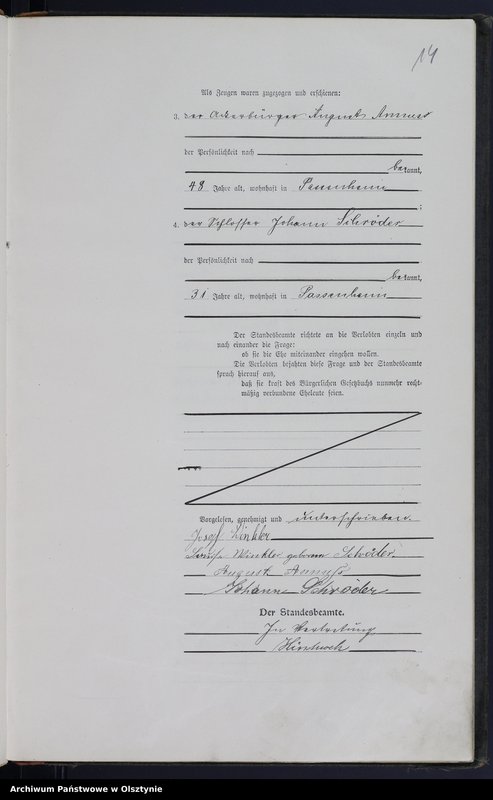 14
Als Zeugen waren zugezogen und erschienen:
3. der Ackerbürger August Annuss
der Persönlichkeit nach
bekannt,
48 Jahre alt, wohnhaft in Passenheim
;
4. der Schlosser Johann Schröder
der Persönlichkeit nach
bekannt,
31 Jahre alt, wohnhaft in Passenheim
Der Standesbeamte richtete an die Verlobten einzeln und
nach einander die Frage:
ob sie die Ehe miteinander eingehen wollen.
Die Verlobten bejahten diese Frage und der Standesbeamte
sprach hierauf aus,
daß sie kraft des Bürgerlichen Gesetzbuchs nunmehr recht-
mäßig verbundene Eheleute seien.
Vorgelesen, genehmigt und unterschrieben.
Josef Winkler
Winkler geborene Schröder
August Annuß
Johann Schröder
Der Standesbeamte.
In Vertretung
Archiwum Państwowe w Olsztynie